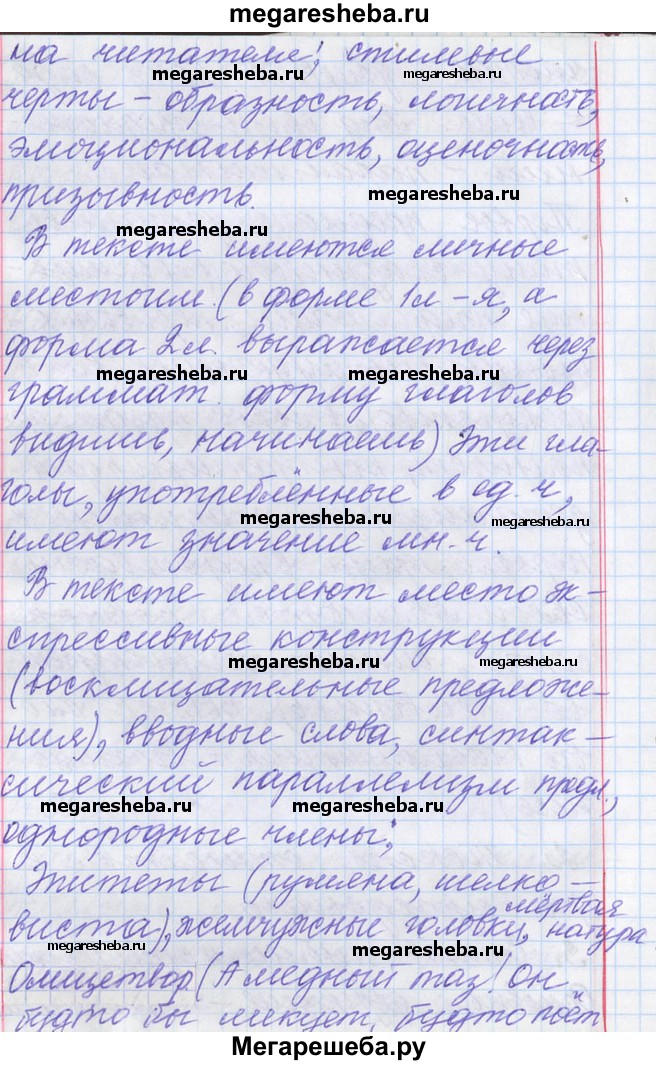 megaresheba.ru
на читателя; стилевые
megaresheba.ru megaresheba.ru
черты – образность, логичность,
эмоциональность, оценочность,
призывность. megaresheba.ru
megaresheba.ru
В тексте имеются личные
местоим. (в форме 1л – я, а
форма 2л. выражается через
megaresheba.ru megaresheba.ru
граммат. форму глаголов
видишь, начинаешь) Эти гла-
голы, употреблённые в ед. ч,
megaresheba.ru megaresheba.ru
имеют значение мн. ч.
В тексте имеют место эк-
спрессивные конструкции
megaresheba.ru megaresheba.ru
(восклицательные предложе-
ния), вводные слова, синтак-
сический параллелизм предл.,
megaresheba.ru megaresheba.ru
однородные члены;
Эпитеты (румяна, шелко-
мертвая
виста), жемчужные головки, натура
megaresheba.ru megaresheba.ru
Олицетвор. (А медный таз! Он
будто бы ликует, будто поёт
Мегарешеба.ру